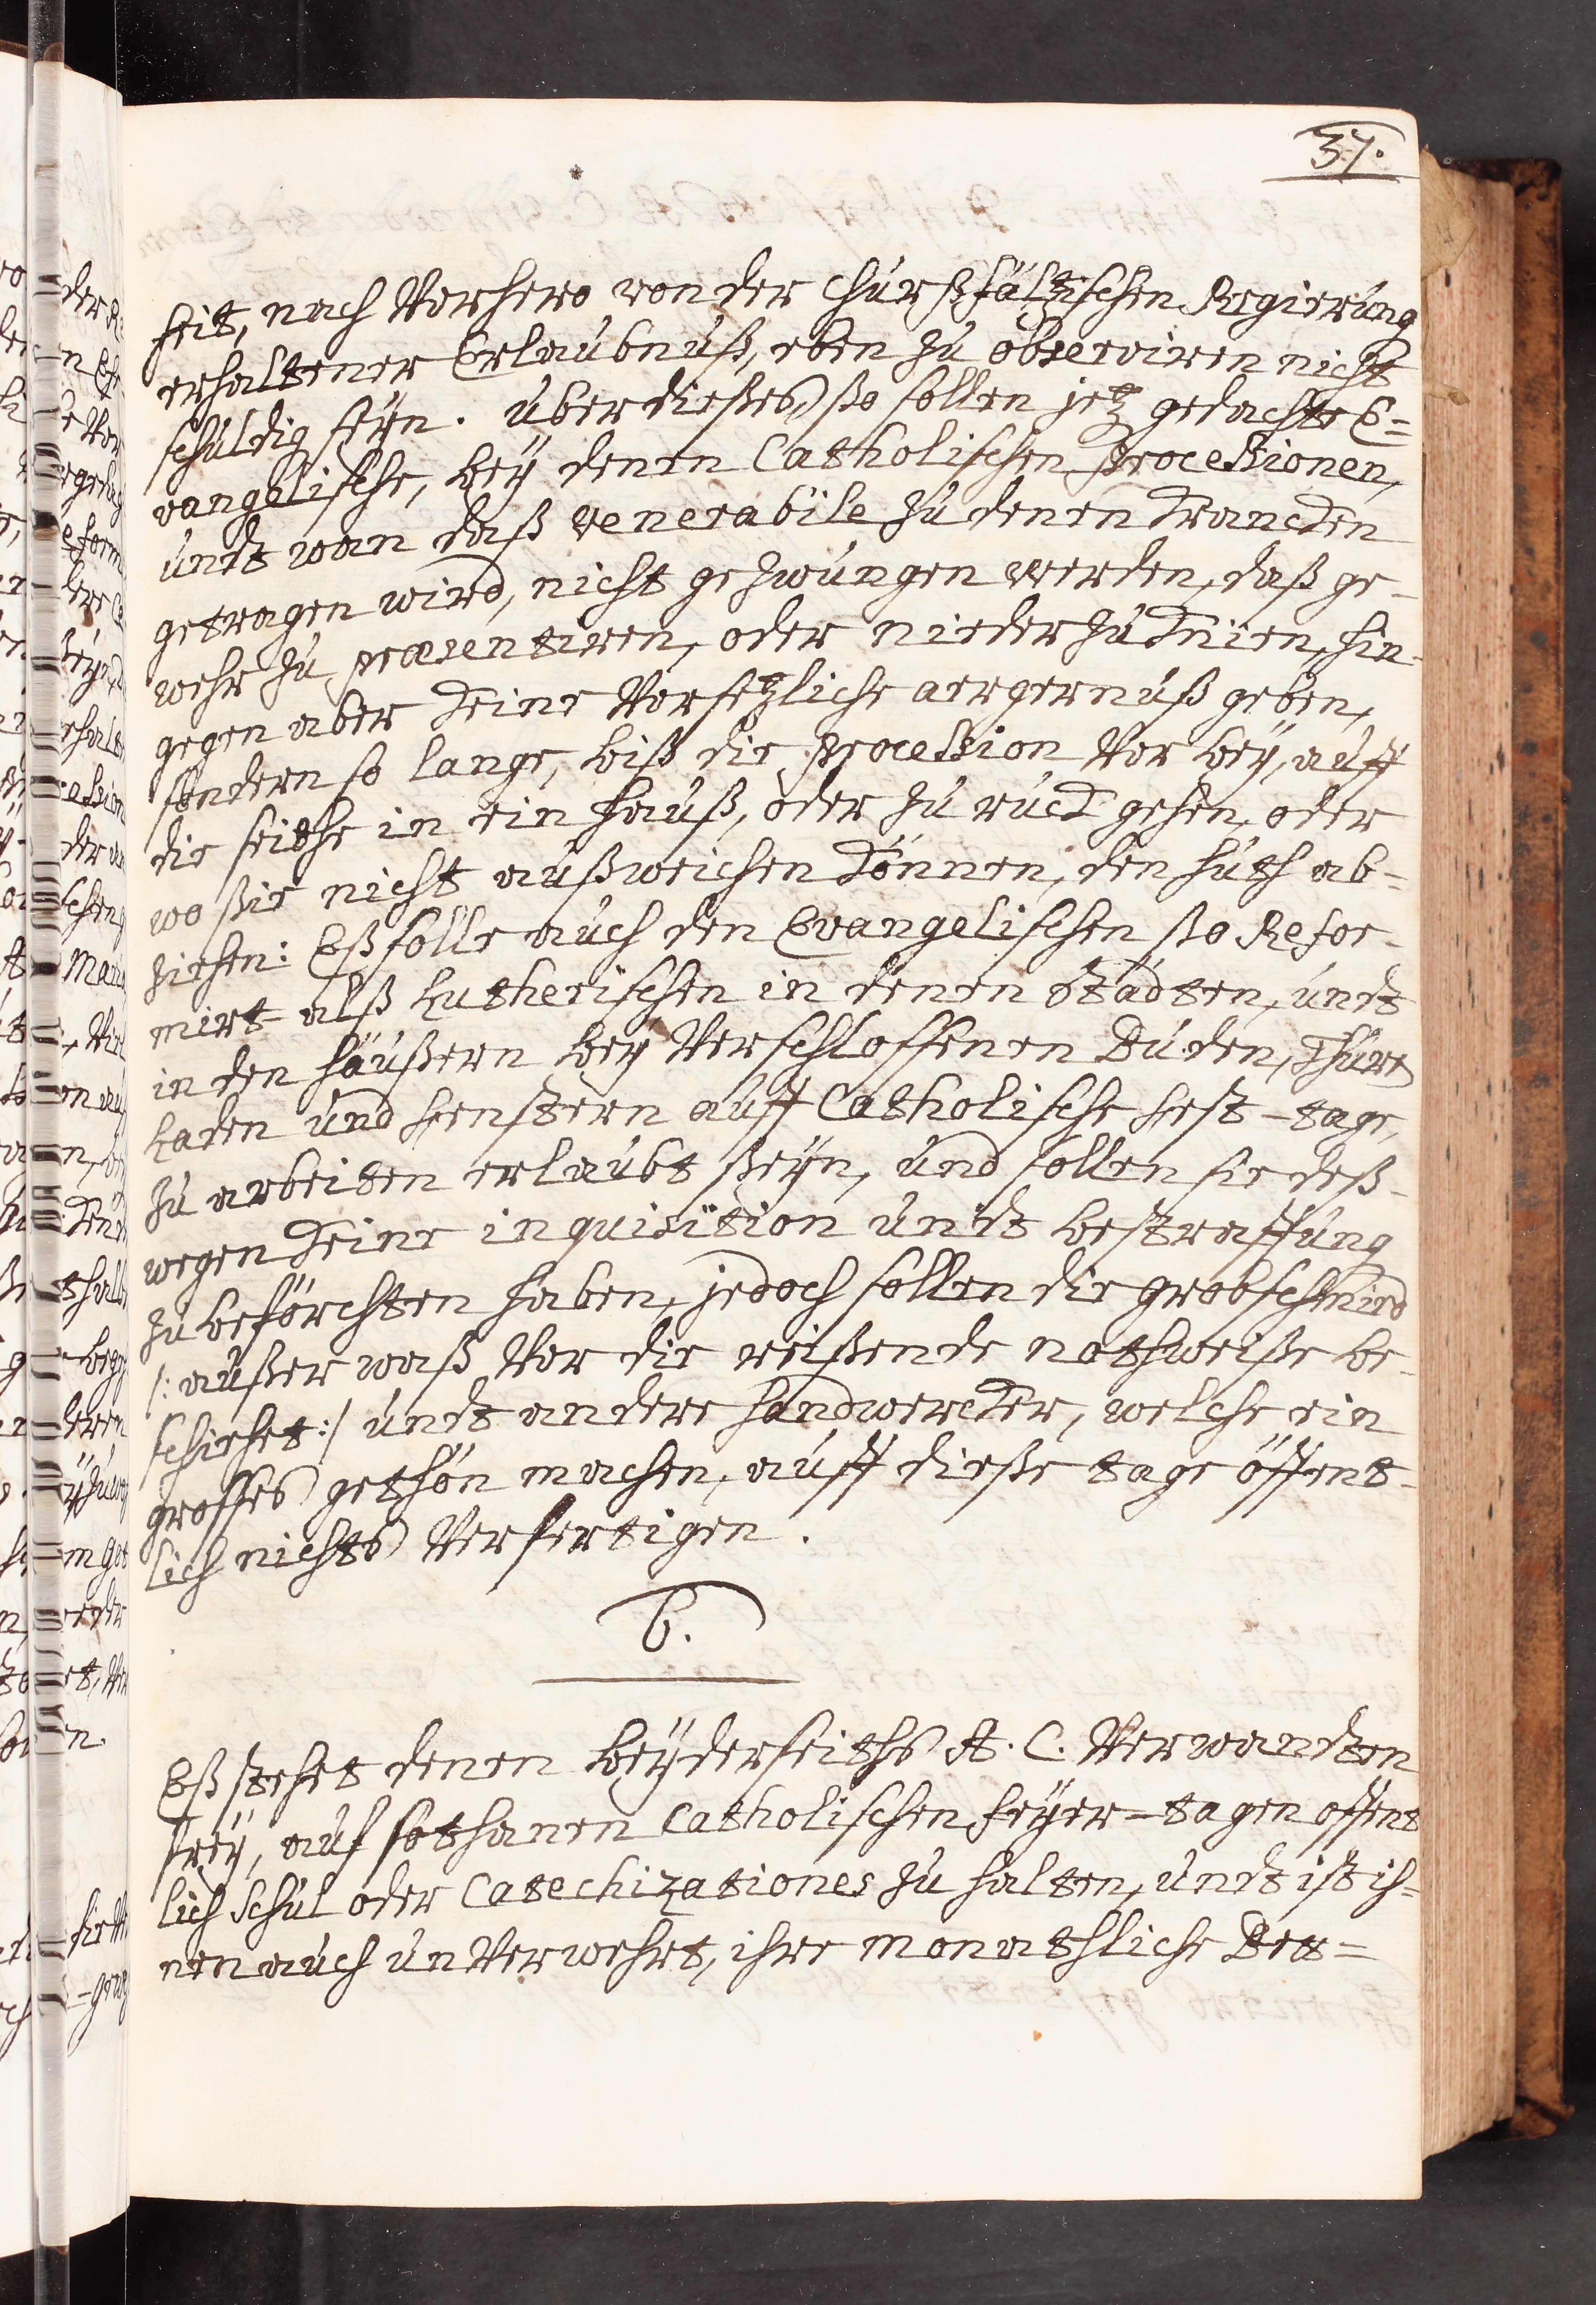 37.
heit, nach Vorhero von der Chur Pfältzischen Regierung
erhaltener Erlaubnuß, eben zu observiren nicht
schuldig seÿn. Uber dießes, ßo sollen jetz gedachte E=
vangelische, beÿ denen Catholischen Processionen,
undt wan daß Venerabile zu denen Krancken
getragen wird, nicht gezwungen werden, daß ge-
wehr zu præsentiren, oder nieder zu knien, hin-
gegen aber keine Vorsetzliche aergernuß geben,
sondern so lange, biß die Procession Vor beÿ, auff
die seithe in ein Hauß, oder zu ruck gehen, oder
wo ßie nicht außweichen können, den Huth ab=
ziehen: Eß solle auch den Evangelischen ßo Refor-
mirt- alß Lutherischen in denen Städten, undt
in den Häußern beÿ Verschlossenen Buden, Thüre
Laden und Fenstern auff Catholische Fest-tage,
zu arbeiten erlaubt ßeÿn, und sollen sie deß-
wegen keine inquisition undt bestraffung
zu beförchten haben, jedoch sollen die grobschmied
/: außer waß Vor die reißende nothweiße be-
schiehet :/ undt andere Handwercker, welche ein
grosses gethön machen, auff dieße tage öffent-
lich nichts Verfertigen.
6.
Eß stehet denen beÿderseiths A. C. Verwandten
freÿ, auf sothanen Catholischen Feÿer-tagen offent
lich Schul oder Catechizationes zu halten, undt ist ih=
nen auch unVerwehrt, ihre monathliche Bett=